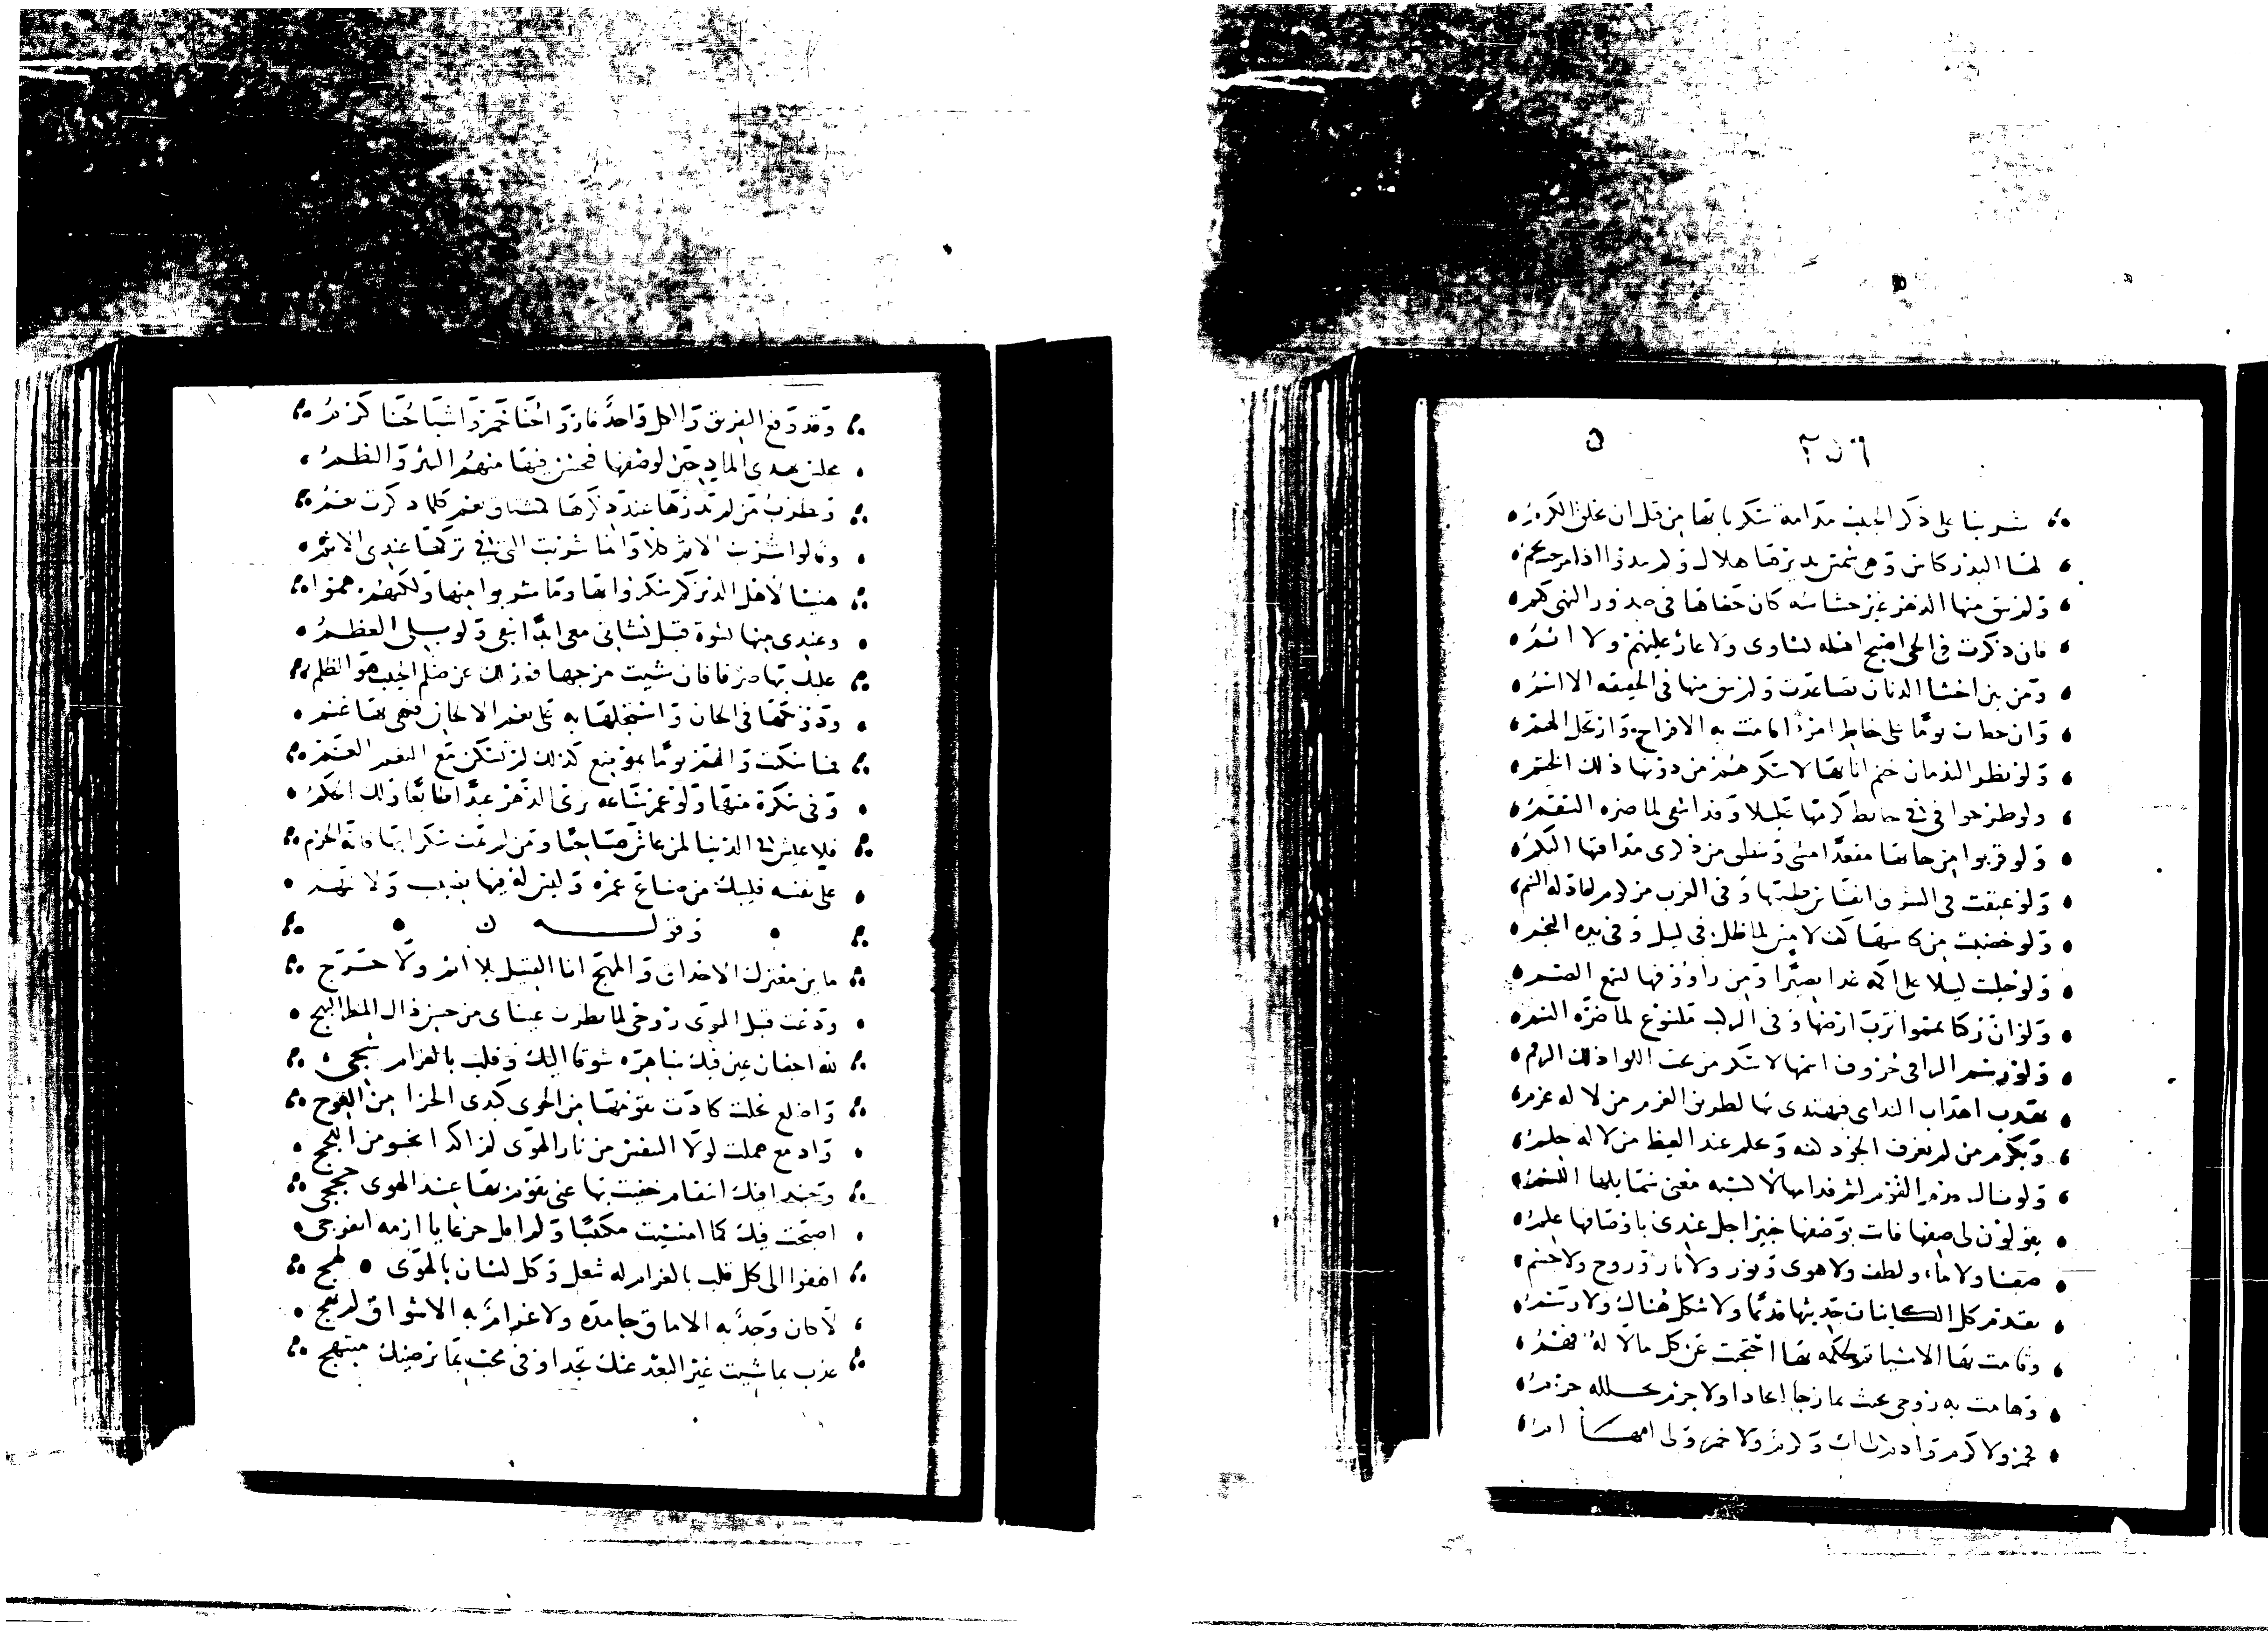 شربنا على ذكر الحبيب مدامة سكرنا بها من قبل ان يخلق الكرم
لها البدر كاس وهي شمس يديرها هلال وكم يبدو اذا مزجت نجم
ولم يبق منها الدهر غير حشاشه كان خفاها في صدور النهى كتم
فان ذكرت في الحي اصبح اهله نشاوى ولا عار عليهم ولا اثم
ومن بين احشا الدنان تصاعدت ولم يبق منها في الحقيقه الا اسم
وان خطرت يوما على خاطر امرء اقامت به الافراح وارتحل الهم
ولو نظر الندمان ختم انائها لاسكرهم من دونها ذلك الختم
ولو طرحوا في في حايط كرمها عليلا وقد اشفى لما ضره السقم
ولو قربوا من حانها مقعدا مشى وينطق من ذكرى مذاقتها البكم
ولو عبقت في الشرق انفاس طيبها وفي الغرب مزكوم لعاد له الشم
ولو خضبت من كاسها كف لامس لما ظل في ليل وفي يده النجم
ولو جليت ليلا على اكمه غدا بصيرا ومن راووقها تسمع الصم
ولو ان ركبا يمموا ترب ارضها وفي الركب ملسوع لما ضره السم
ولو رسم الراقي حروف اسمها لاسكر من تحت اللوا ذلك الرقم
تهذب اخلاق الندامى فيهتدي بها لطريق العزم من لا له عزم
ويكرم من لم يعرف الجود كفه وحلم عند الغيظ من لا له حلم
ولو نال فدم القوم لثم فدامها لاكسبه معنى شمايلها اللثم
يقولون لي صفها فانت بوصفها خبير اجل عندي باوصافها علم
صفا ولا ماء ولطف ولا هوى ونور ولا نار وروح ولا جسم
تقدم كل الكاينات حديثها قديما ولا شكل هناك ولا رسم
وقامت بها الاشيا ثم لحكمه بها احتجبت عن كل ما لا له فهم
وهامت به روحي بحيث تمازجا اتحادا ولا جرم تخلله جرم
فخمر ولا كرم وادم لي اب وكرم ولا خمر ولي امها ام
وقد وقع التفريق والكل واحد فارواحنا خمر واشباحنا كرم
محاسن تهدي المادحين لوصفها فيحسن فيها منهم النثر والنظم
ويطرب من لم يدرها عند ذكرها كمشتاق نعم كلما ذكرت نعم
وقالوا شربت الاثم كلا وانما شربت التي في تركها عندي الاثم
هنيئا لاهل الدير كم سكروا بها وما شربوا منها ولكنهم هموا
وعندي منها نشوة قبل نشاتي معي ابدا تبقى ولو بلي العظم
عليك بها صرفا فان شيت مزجها فعدلك عن ظلم الحبيب هو الظلم
ودونكها في الحان واستجلها به على نغم الالحان فهي بها غنم
فما سكنت والهم يوما بموضع كذلك لم يسكن مع النغم الغم
وفي سكرة منها ولو عمر ساعه ترى الدهر عبدا طايعا ولك الحكم
فلا عيش في الدنيا لمن عاش صاحيا ومن لم يمت سكرا بها فاته الحزم
على نفسه فليبك من ضاع عمره وليس له فيها نصيب ولا سهم
وقوله
ما بين معترك الاحداق والمهج انا القتيل بلا اثم ولا حرج
ودعت قبل الهوى روحي لما نظرت عيناي من حسن ذاك المنظر البهج
لله اجفان عين فيك ساهره شوقا اليك وقلب بالغرام شجي
واضلع نحلت كادت تقومها من الجوى كبدي الحرا من العوج
وادمع هملت لولا التنفس من نار الهوى لم اكد انجو من اللجج
وحبذا فيك اسقام خفيت بها عني تقوم بها عند الهوى حججي
اصبحت فيك كما امسيت مكتئبا ولم اقل جزعا يا ازمه انفرجي
اهفوا الى كل قلب بالغرام له شغل وكل لسان بالهوى لهج
لا كان وجد به الاماق جامده ولا غرام به الاشواق لم تهج
عذب بما شيت غير البعد عنك تجد اوفى محب بما يرضيك مبتهج